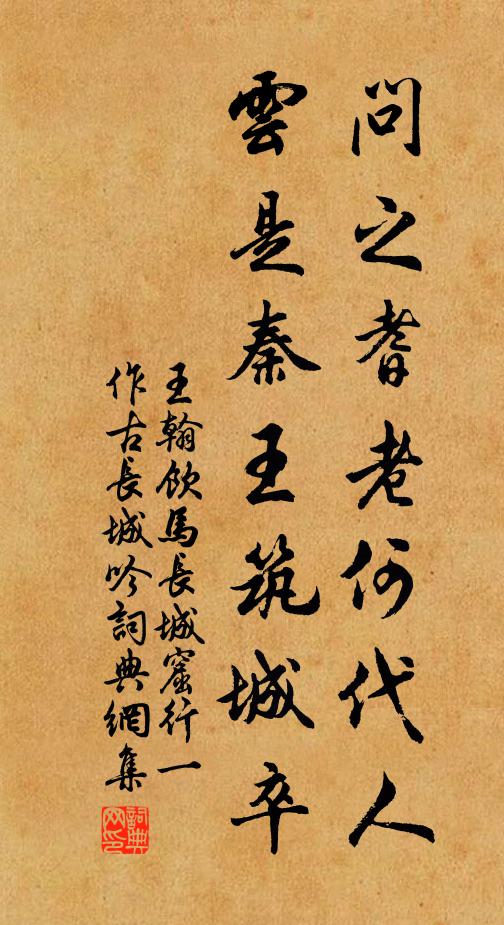 問之耆老何代人
雲是秦王筑城卒
王翰飲馬長城窟行一
作古長城吟詞典網集
詞典网印